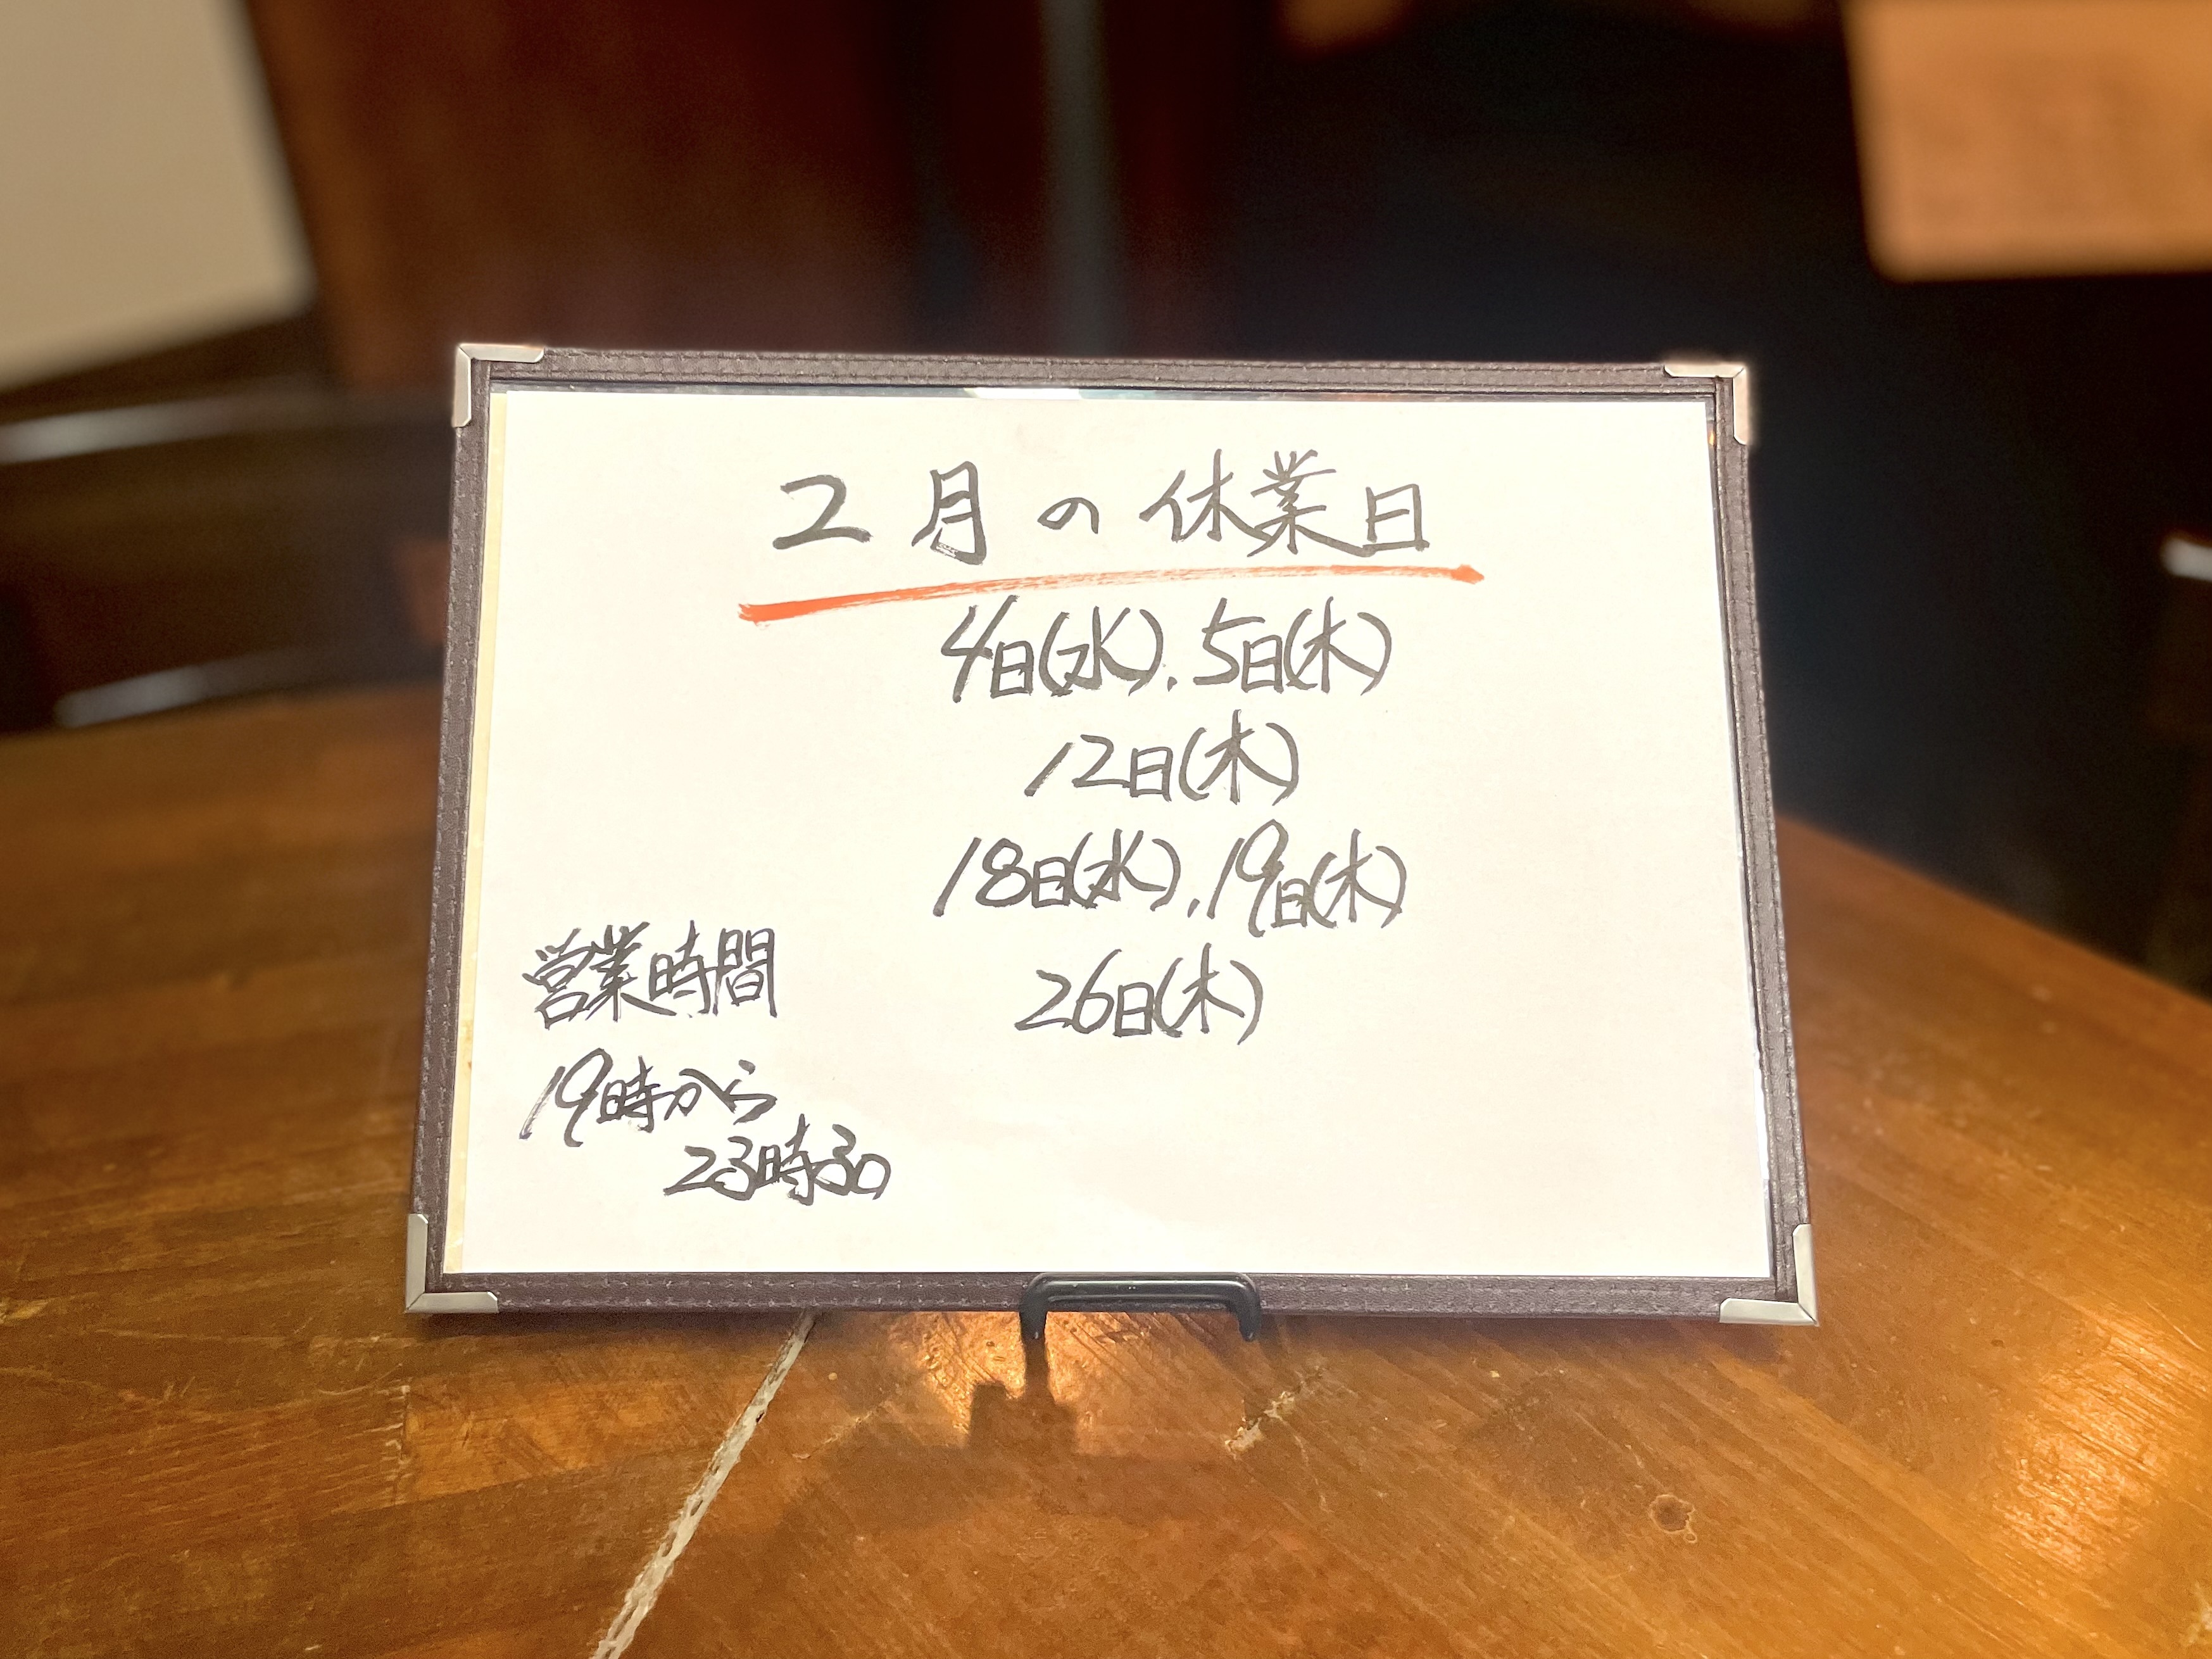 2月の休業日
4日(水).5日(木)
12日(木)
18日(水),19日(木)
26日(木)
営業時間
19時から
23時30